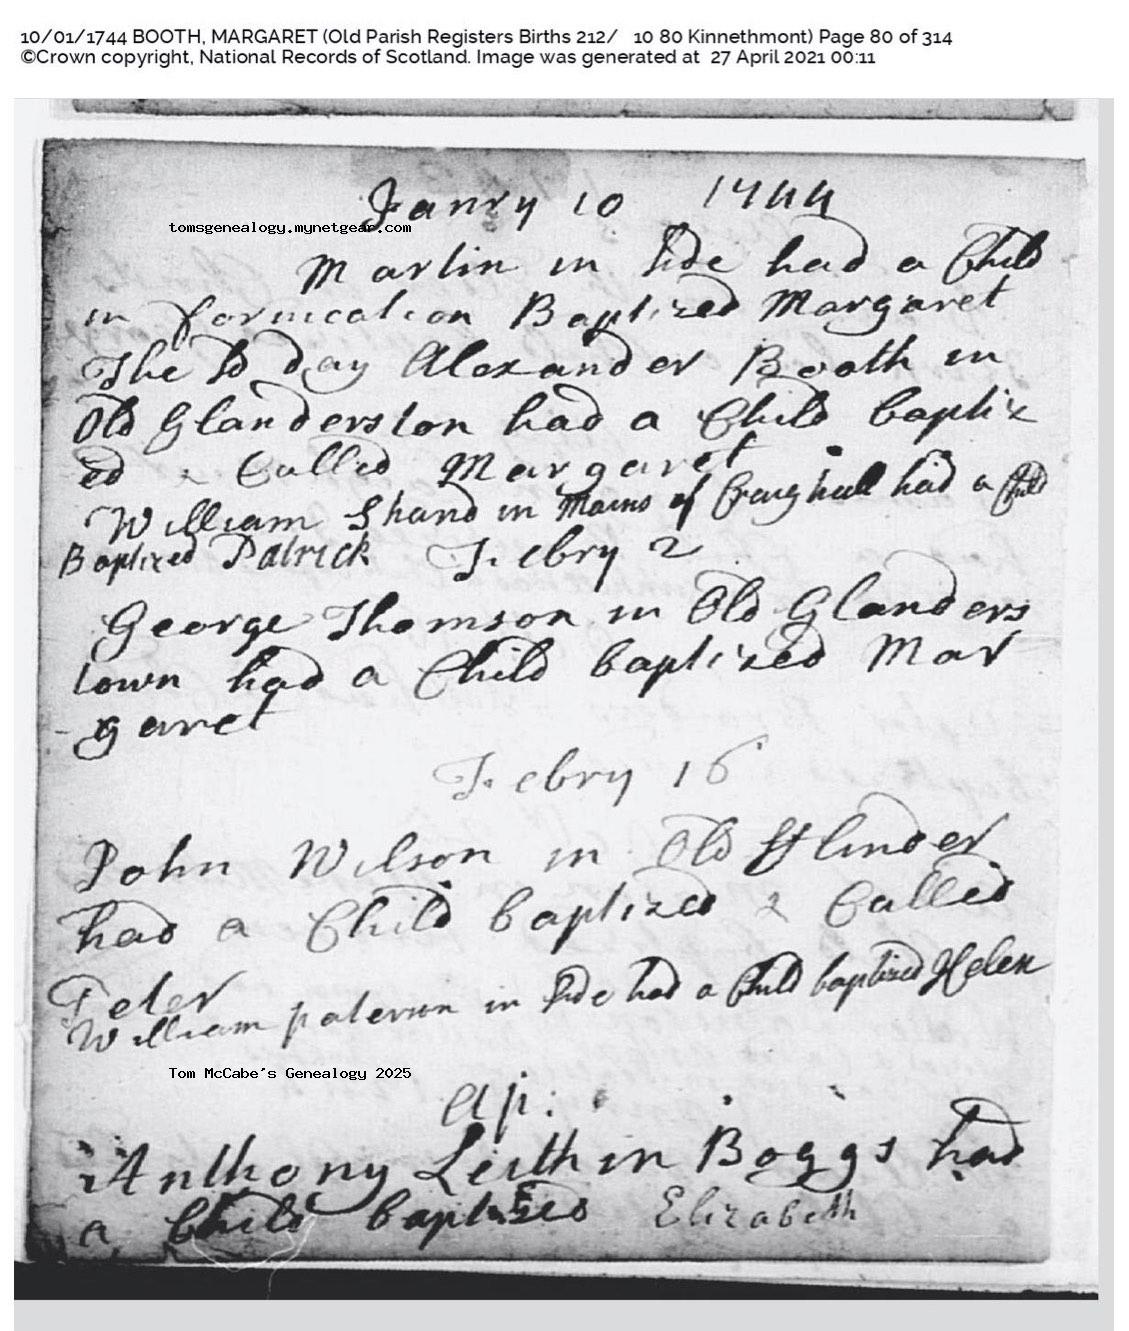 10/01/1744 BOOTH, MARGARET (Old Parish Registers Births 212/ 10 80 Kinnethmont) Page 80 of 314
©Crown copyright, National Records of Scotland. Image was generated at 27 April 2021 00:11
Janry 10 1744
tomsgenealogy.mynetgear.com
Martin in had a Child
in fornication Baptized Margaret
The day Alexander Booth in
Old Glanderston had a Child baptiz
ed & Called Margaret
William Shand in Mains of Craighall had a Child
Baptized Patrick Febry 2
George Thomson in Old Glanders
town had a Child baptized Mar
garet
Febry 16
John Wilson in Old
had a Child baptized & Called
Peter
William paterson in had a Child baptized Helen
Tom McCabe's Genealogy 2025
Ap:
Anthony Leith in Boggs had
a Child baptized Elizabeth